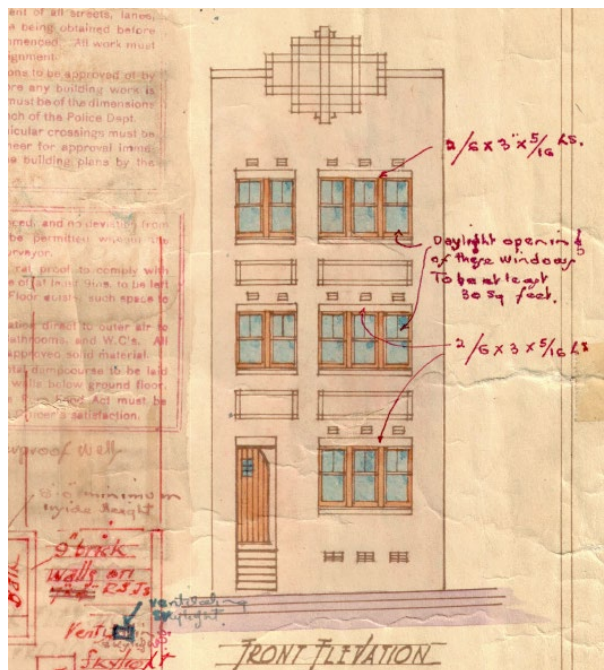 ent of all streets, lanes,
being obtained before
menced. All work must
ignment.
ons to be approved of by
re any building work is
must be of the dimensions
ch of the Police Dept.
icular crossings must be
neer for approval immed-
e building plans by the
nced, and no deviation from
be permitted without the
urveyor.
ral proof to comply with
to be left
Floor joists, such space to
ation direct to outer air to
athrooms, and W.C's. All
approved solid material.
tal dampcourse to be laid
walls below ground floor.
Act must be
officer's satisfaction.
proof Wall
minimum
inside height
9" brick
walls on
R.S.Js
ventilating
skylight
Bath
2/6 x 3" x 5/16 LS.
Daylight opening
of these windows
To be at least
30 Sq feet.
2/6 x 3 x 5/16 LS
FRONT ELEVATION